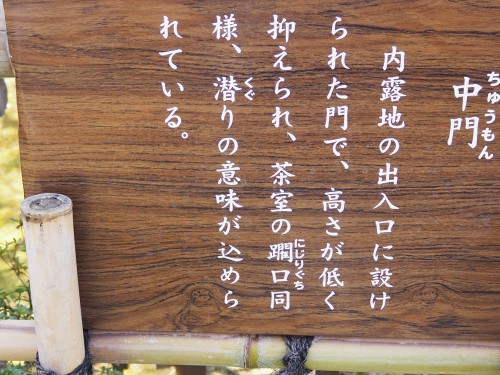 中門
ちゅうもん
内露地の出入口に設け
られた門で、高さが低く
抑えられ、茶室の躙口同
にじりぐち
様、潜りの意味が込めら
くぐ
れている。